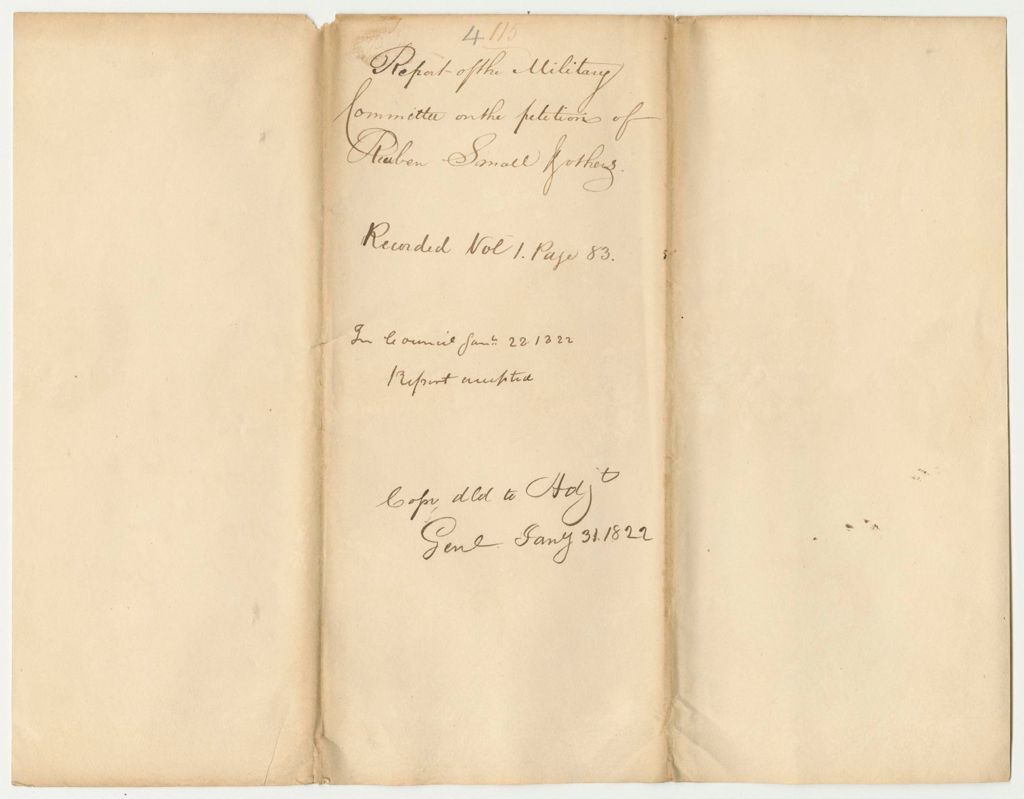 4 115
Report of the Military
Committee on the petition of
Reuben Small & others.
Recorded Vol 1. Page 83.
In Council Jany 22 1822
Report accepted
Copy dld to Adjt
Genl Jany 31. 1822